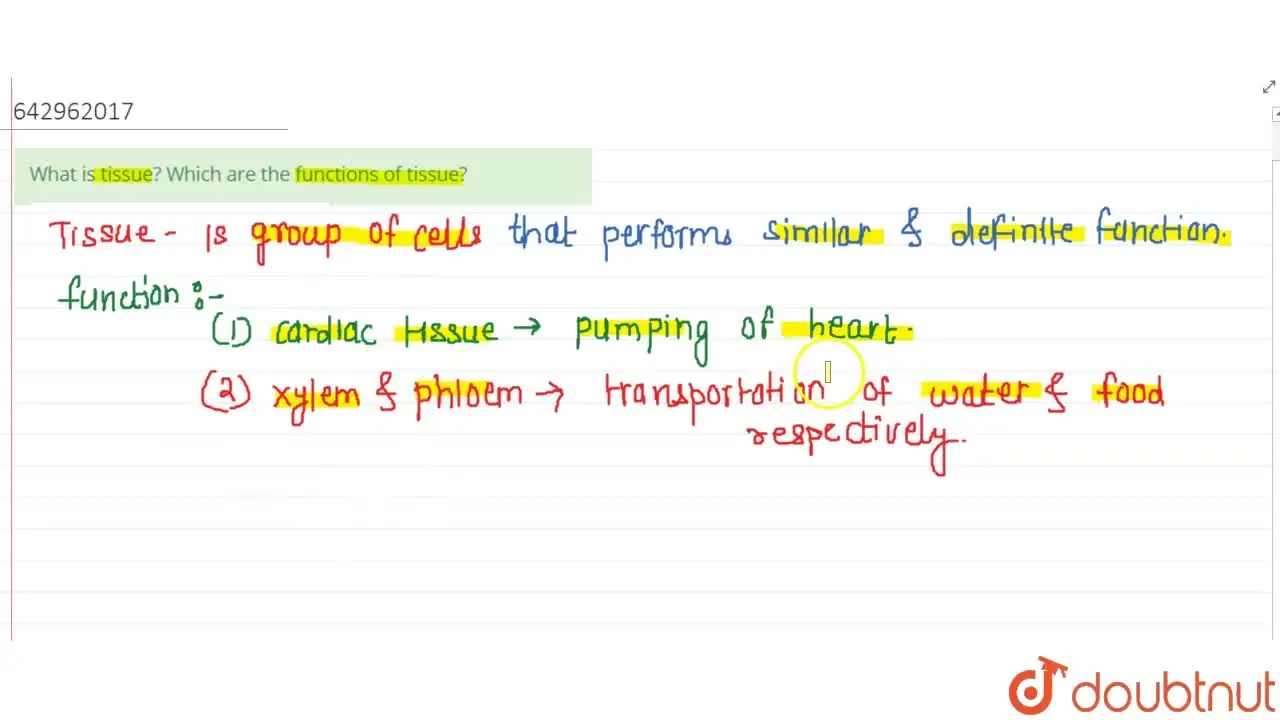 642962017
What is tissue? Which are the functions of tissue?
Tissue - is group of cells that performs similar & definite function.
function :-
(1) cardiac tissue → pumping of heart.
(2) xylem & phloem → transportation of water & food
respectively.
doubtnut